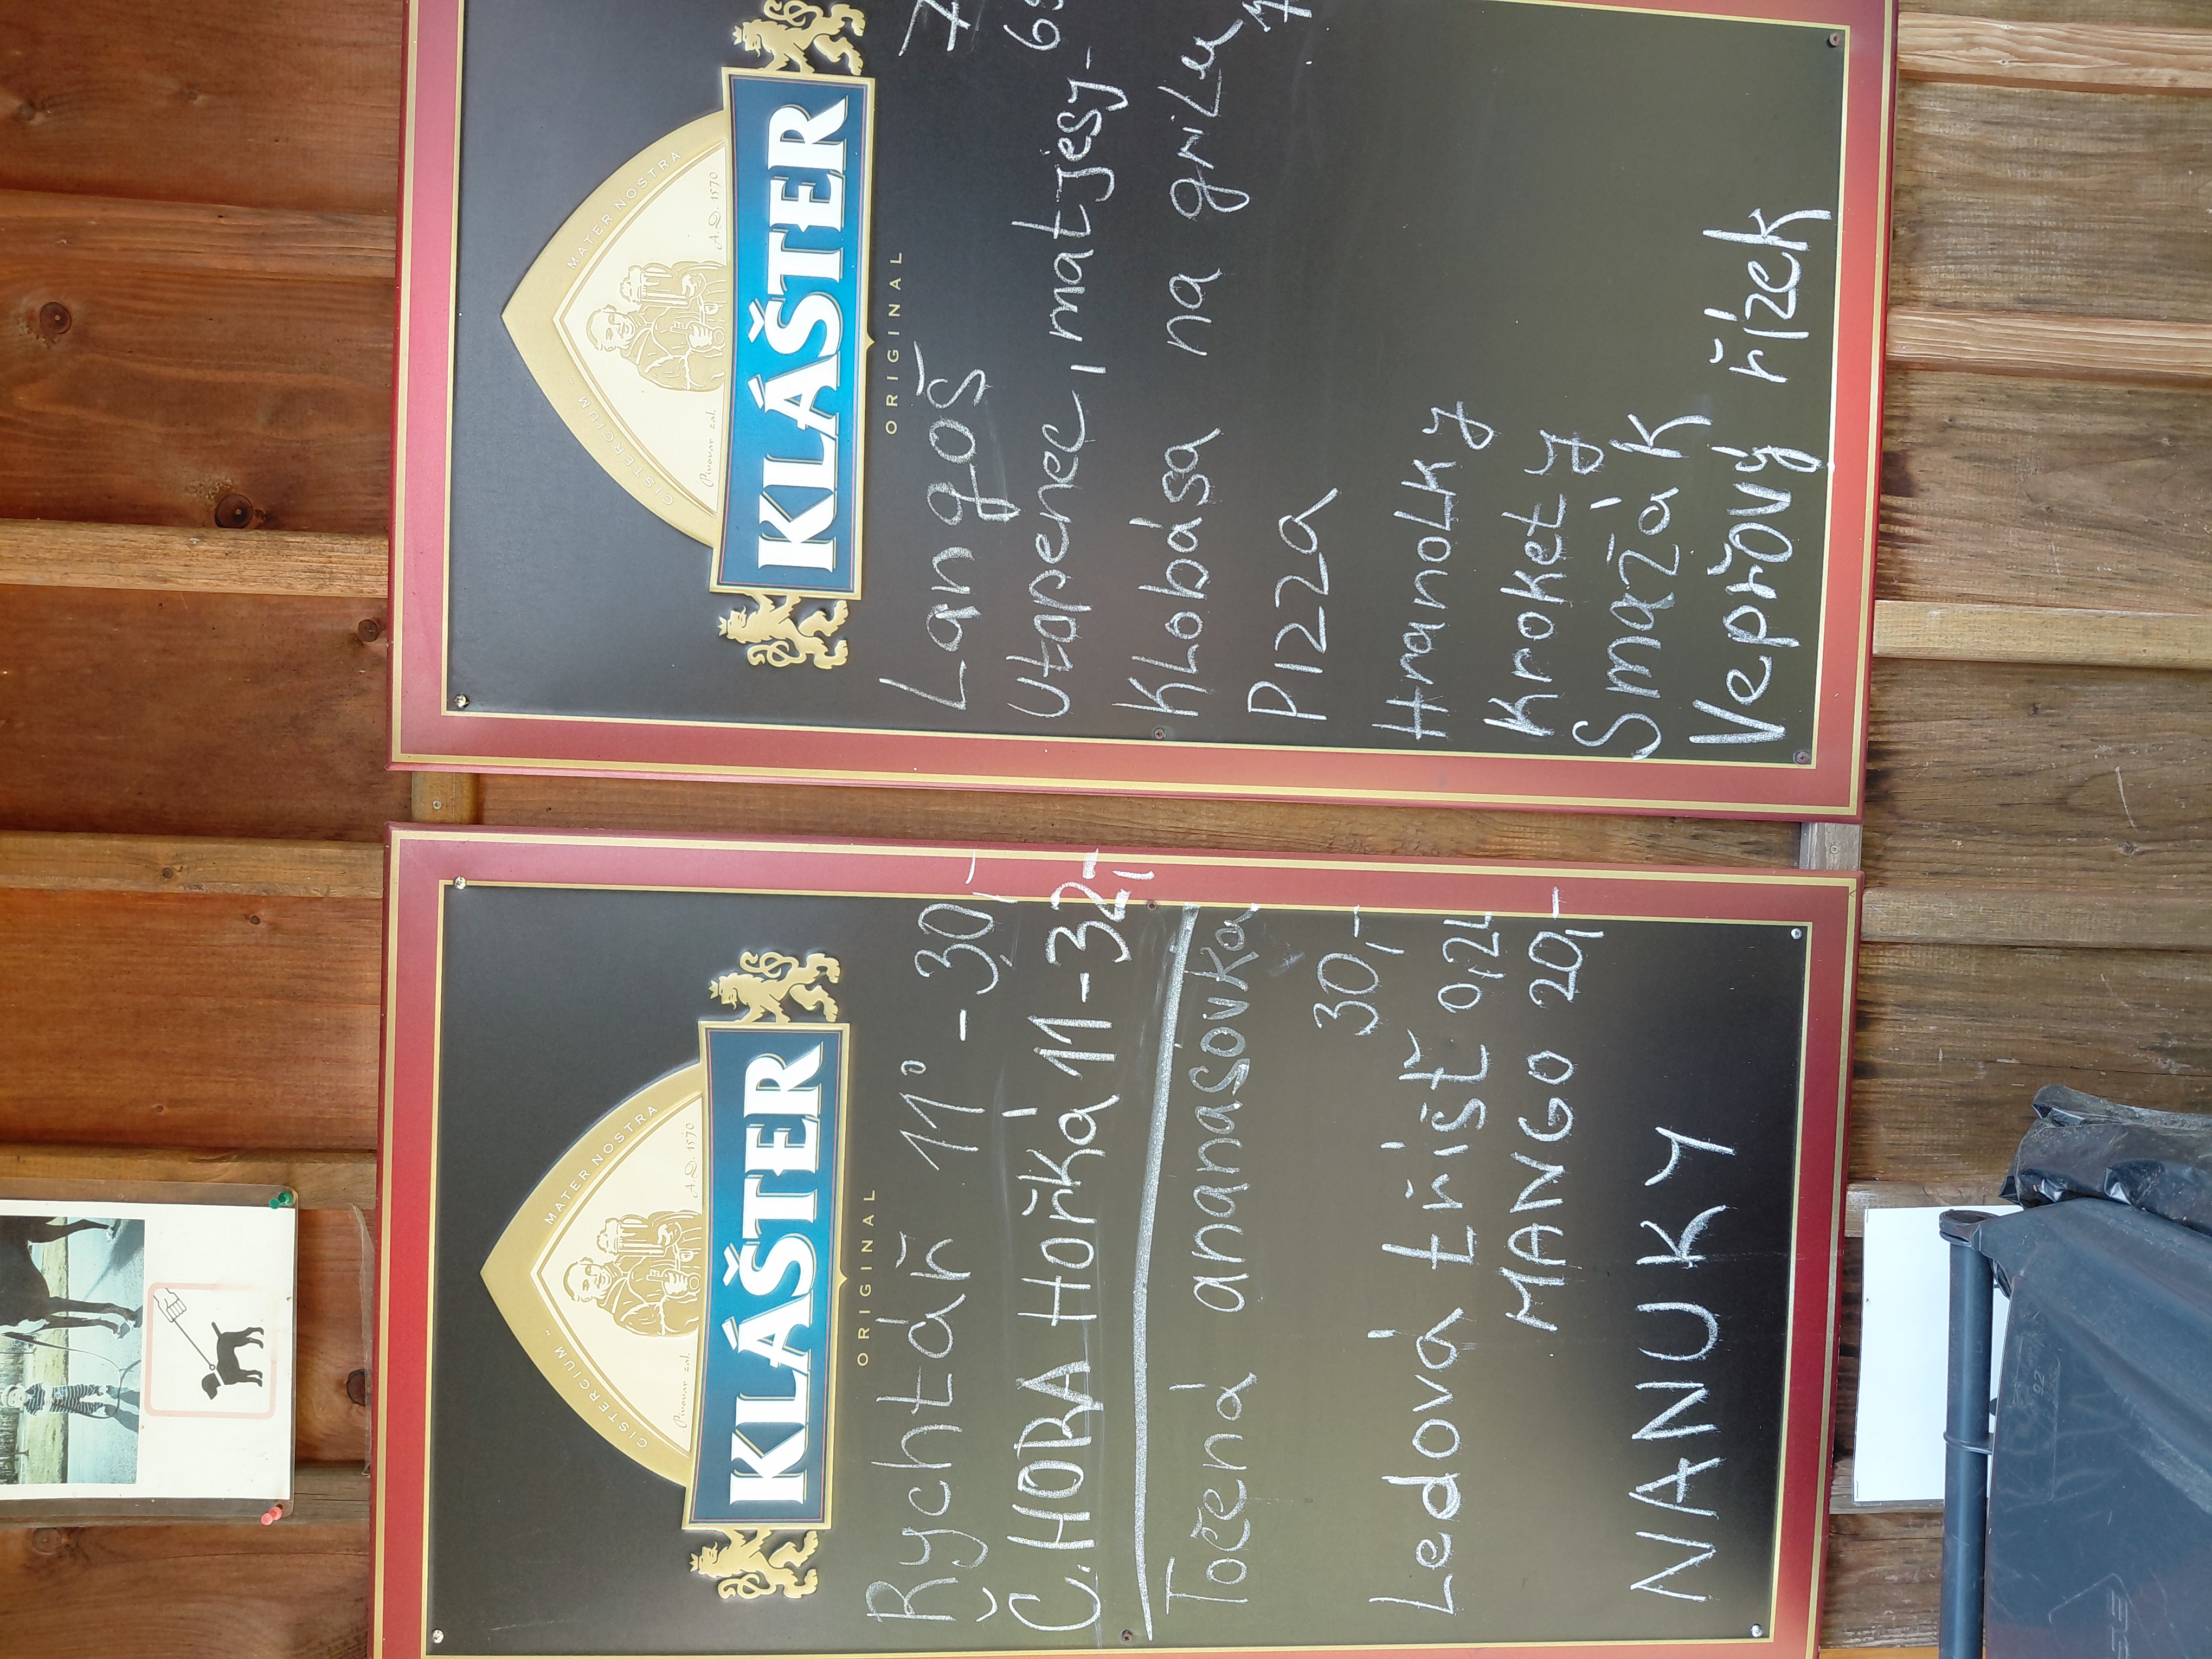 CISTERCIUM - MATER NOSTRA
Pivovar zal. A.D. 1570
KLÁŠTER
ORIGINAL
Rychtář 11° - 30,-
Č. HORA Hořká 11 - 32,-
Točená ananasovka
30,-
Ledová tříšť 0,2L
MANGO 20,-
NANUKY
CISTERCIUM - MATER NOSTRA
Pivovar zal. A.D. 1570
KLÁŠTER
ORIGINAL
Langoš 7
Utopenec, matjesy - 65
Klobása na grilu 7
PIZZA
Hranolky
Krokety
Smažák
Vepřový řízek